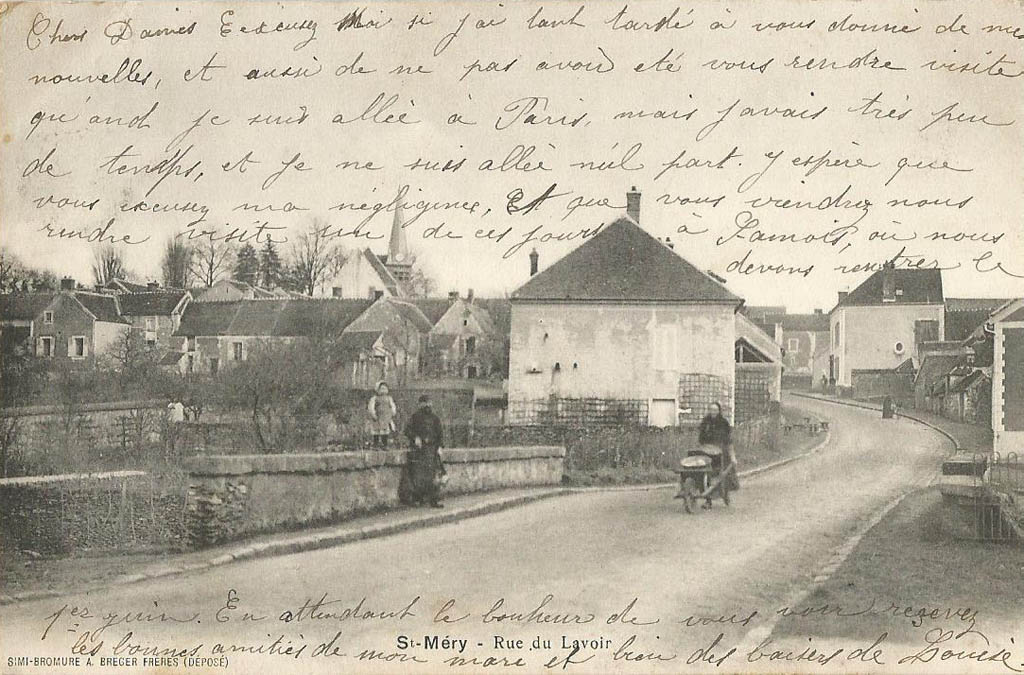 Chers Dames Eexcusez Moi si j'ai tant tardé à vous donné de mes
nouvelles, et aussi de ne pas avoir eté vous rendre visite
qu'and je suis allée à Paris, mais j'avais très peu
de temps, et je ne suis allée nul part. J'espère que
vous excusez ma négligence, Et que vous viendrez nous
rendre visite un de ces jours à Jamois, où nous
devons rentrer le
1er juin. En attendant le bonheur de vous voir recevez
les bonnes amitiés de mon mare et bien des baisers de Louise
St-Méry - Rue du Lavoir
SIMI-BROMURE A. BREGER FRERES (DÉPOSÉ)